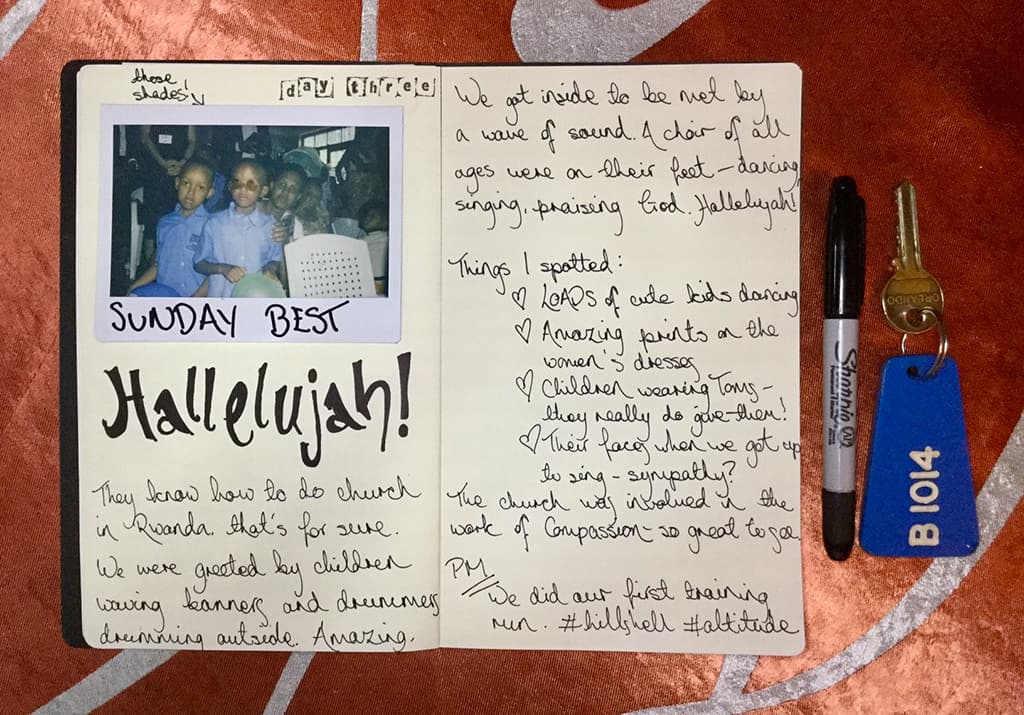 those
shades!
day three
SUNDAY BEST
Hallelujah!
They know how to do church
in Rwanda, that's for sure.
We were greeted by children
waving banners and drummers
drumming outside. Amazing.
We got inside to be met by
a wave of sound. A choir of all
ages were on their feet – dancing,
singing, praising God. Hallelujah!
Things I spotted:
♡ LOADS of cute kids dancing
♡ Amazing prints on the
women's dresses
♡ Children wearing Toms –
they really do give them!
♡ Their faces when we got up
to sing – sympathy?
The church was involved in the
work of Compassion – so great to see.
PM
We did our first training
run. #hillshell #altitude
Sharpie
ORLANDO
B 1014